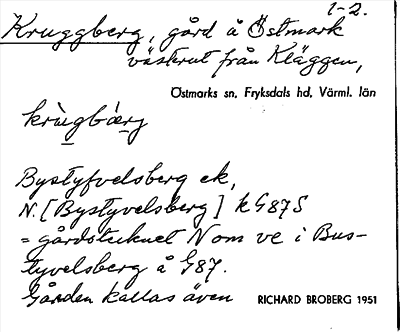 1-2.
Kruggberg, gård å Östmark
västerut från Kläggen,
Östmarks sn, Fryksdals hd, Värml. län
krùgbærg
Bystyfvelsberg ek,
N. [Bystyvelsberg] k G87S
= gårdstecknet N om ve i Bus-
tyvelsberg å G87.
Gården kallas även
RICHARD BROBERG 1951